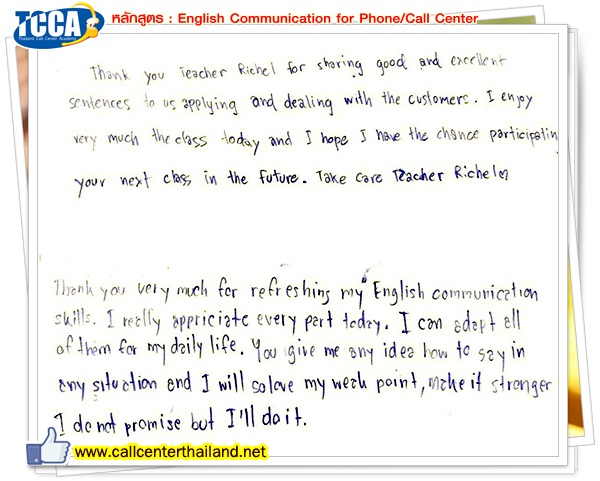 TCCA
Thailand Call Center Academy
หลักสูตร : English Communication for Phone/Call Center
Thank you Teacher Richel for sharing good and excellent
sentences to us applying and dealing with the customers. I enjoy
very much the class today and I hope I have the chance participatin
your next class in the future. Take care Teacher Richel
Thank you very much for refreshing my English communication
skills. I really appriciate every part today. I can adapt all
of them for my daily life. You give me any idea how to say in
any situation and I will solove my weak point, make it stronger
I do not promise but I'll do it.
www.callcenterthailand.net